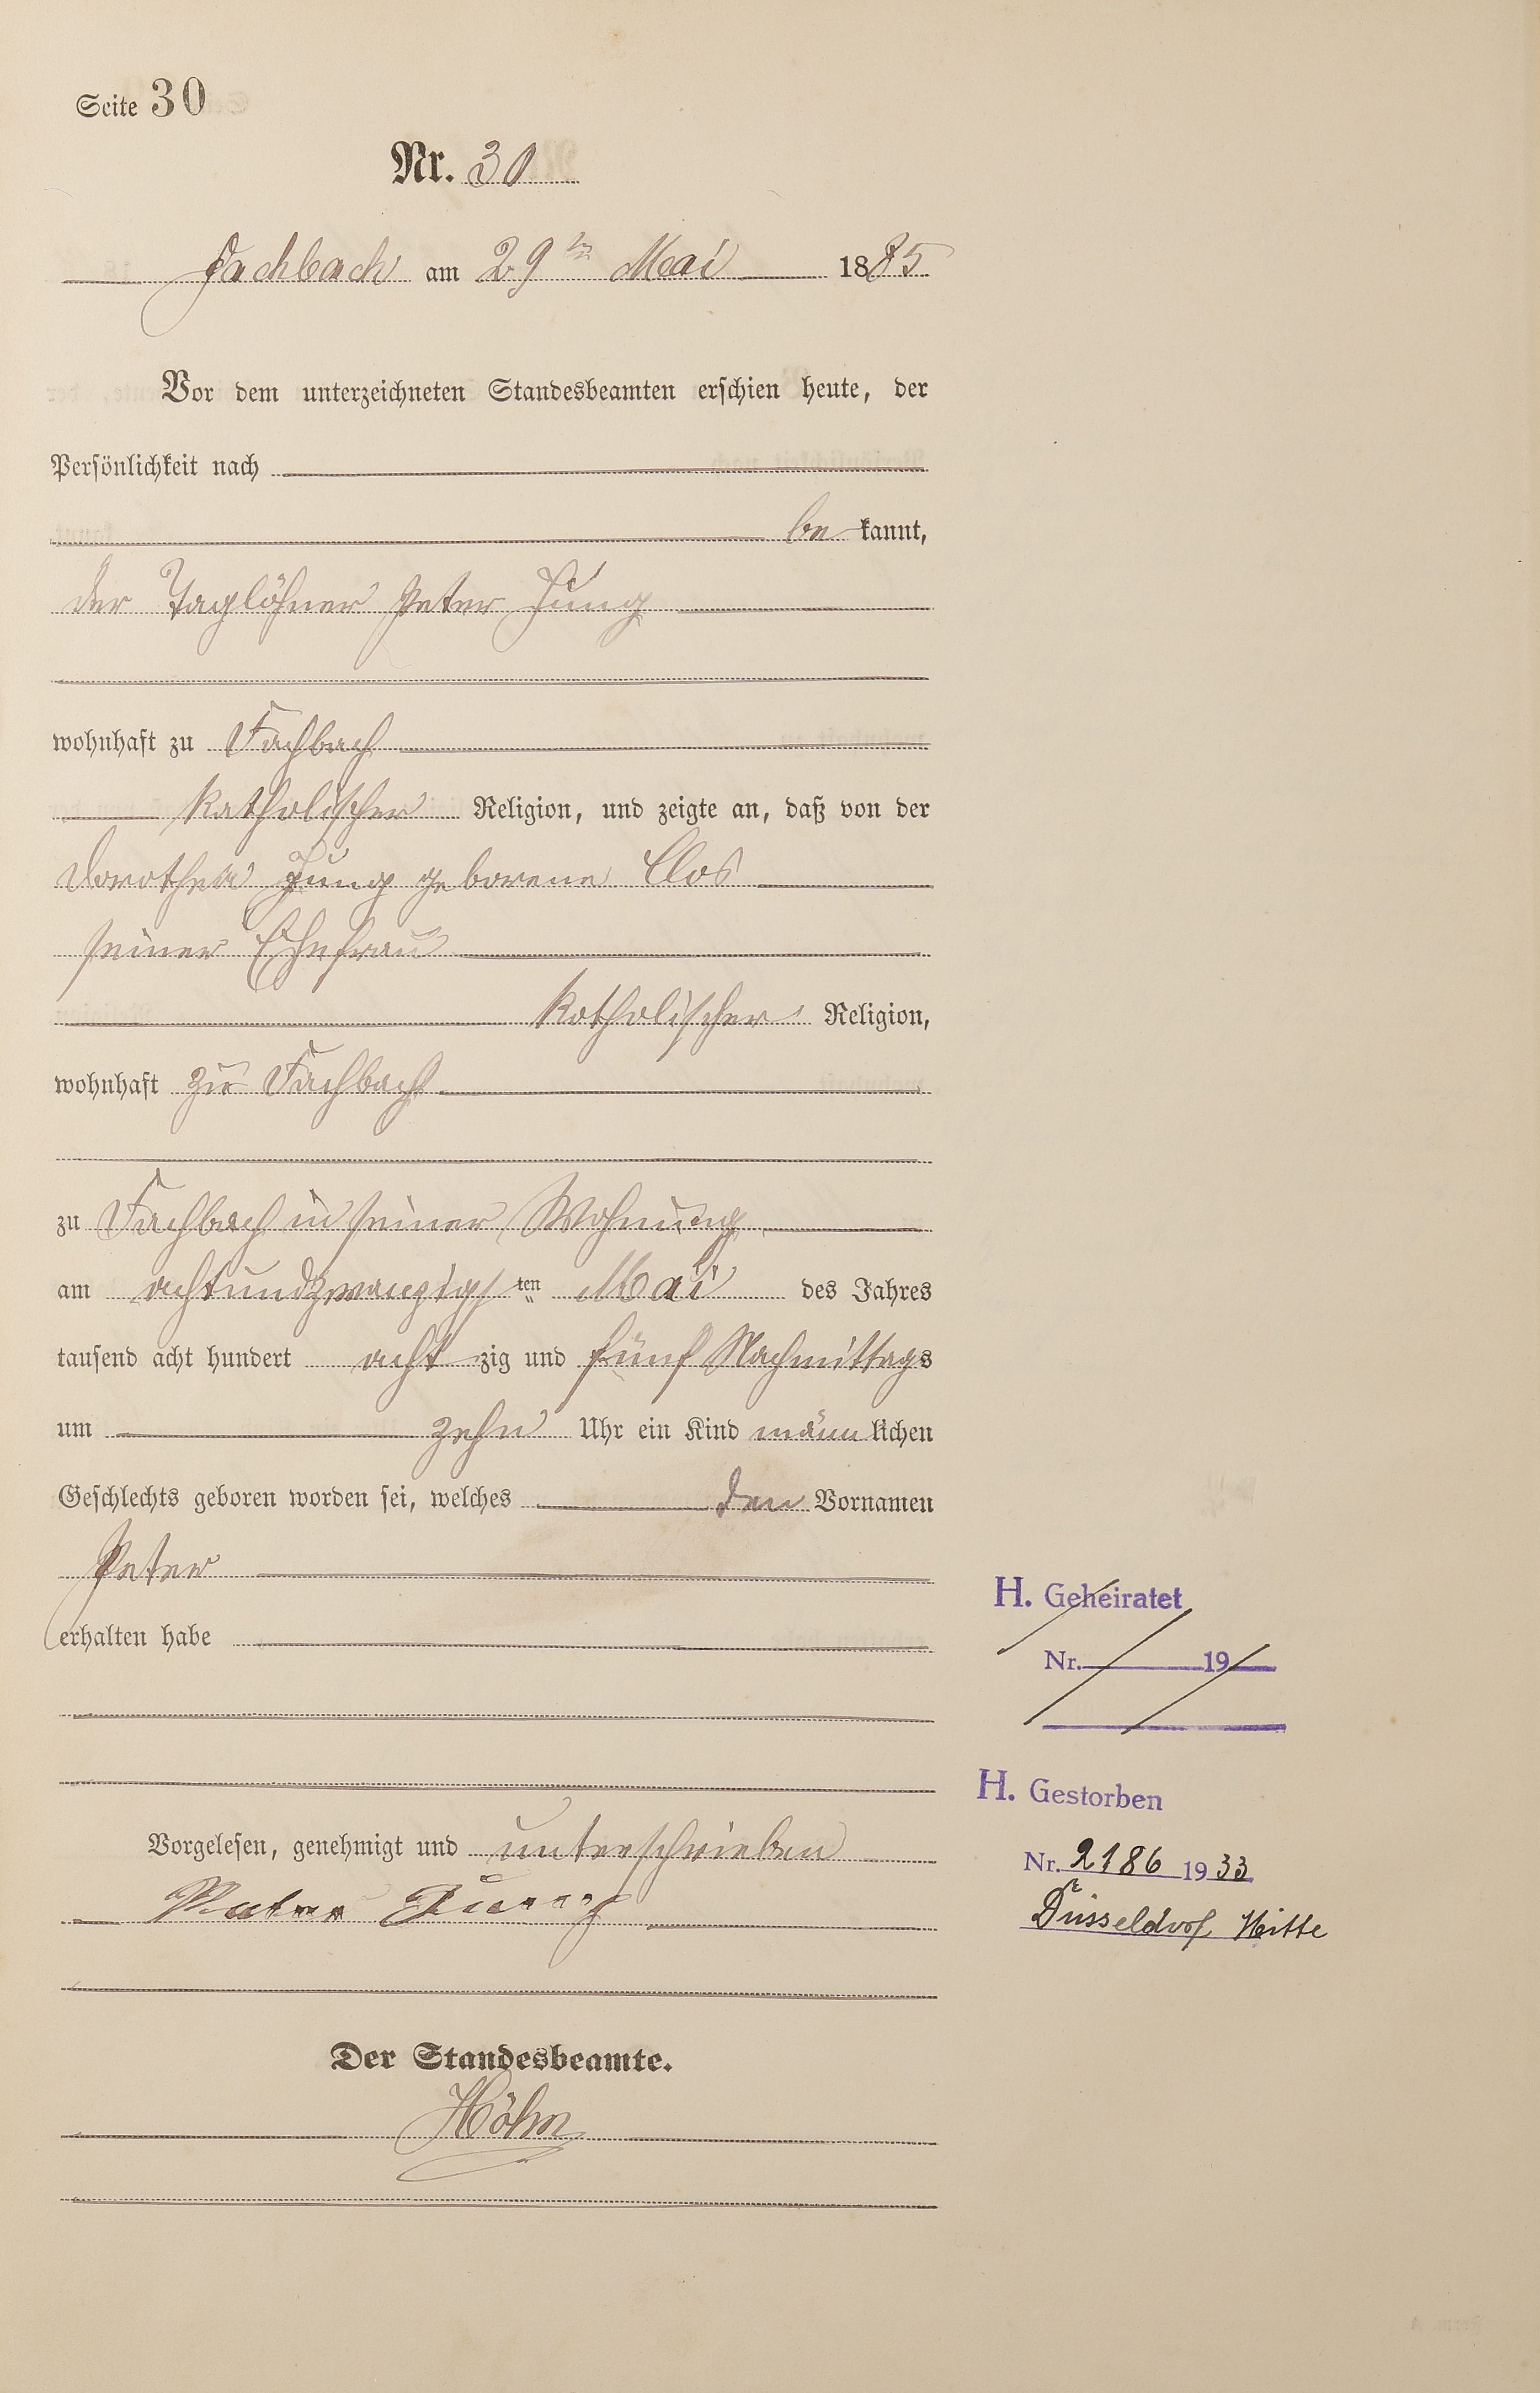 Seite 30
Nr. 30
Fachbach am 29ten Mai 1885
Vor dem unterzeichneten Standesbeamten erschien heute, der
Persönlichkeit nach
bekannt,
der Taglöhner Peter Jung
wohnhaft zu Fachbach
katholischer Religion, und zeigte an, daß von der
Dorothea Jung geborene Clos
seiner Ehefrau
katholischer Religion,
wohnhaft zu Fachbach
zu Fachbach in seiner Wohnung
am achtundzwanzigsten Mai des Jahres
tausend acht hundert achtzig und fünf Nachmittags
um zehn Uhr ein Kind männlichen
Geschlechts geboren worden sei, welches den Vornamen
Peter
erhalten habe
Vorgelesen, genehmigt und unterschrieben
Peter Jung
Der Standesbeamte.
Höhn
H. Geheiratet
Nr. 19
H. Gestorben
Nr. 2186 1933
Düsseldorf Mitte